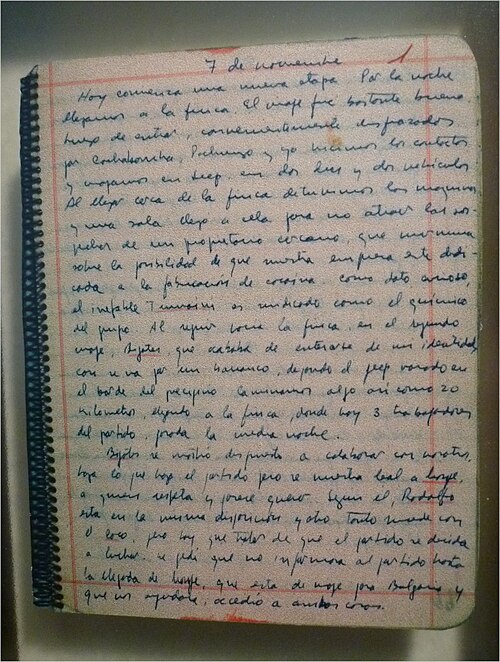 7 de noviembre 1
Hoy comienza una nueva etapa. Por la noche
llegamos a la finca. El viaje fue bastante bueno.
Luego de entrar, convenientemente disfrazados
por Cochabamba, Pachungo y yo hicimos los contactos
y viajamos en jeep, en dos días y dos vehículos.
Al llegar cerca de la finca detuvimos las máquinas
y una sola llegó a ella para no atraer las sos-
pechas de un propietario cercano, que murmura
sobre la posibilidad de que nuestra empresa esté dedi-
cada a la fabricación de cocaína. Como dato curioso,
el inefable Tumaini es indicado como el químico
del grupo. Al seguir hacia la finca, en el segundo
viaje, Bigotes, que acababa de enterarse de mi identidad
casi se va por un barranco, dejando el jeep varado en
el borde del precipicio. Caminamos algo así como 20
kilómetros, llegando a la finca, donde hay 3 trabajadores
del partido, pasada la media noche.
Bigotes se mostró dispuesto a colaborar con nosotros,
haga lo que haga el partido pero se muestra leal a Monje,
a quien respeta y parece querer. Según él, Rodolfo
está en la misma disposición y otro tanto sucede con
el Coco, pero hay que tratar de que el partido se decida
a luchar. Le pedí que no informara al partido hasta
la llegada de Monje, que está de viaje para Bulgaria y
que nos ayudara, accedió a ambas cosas.